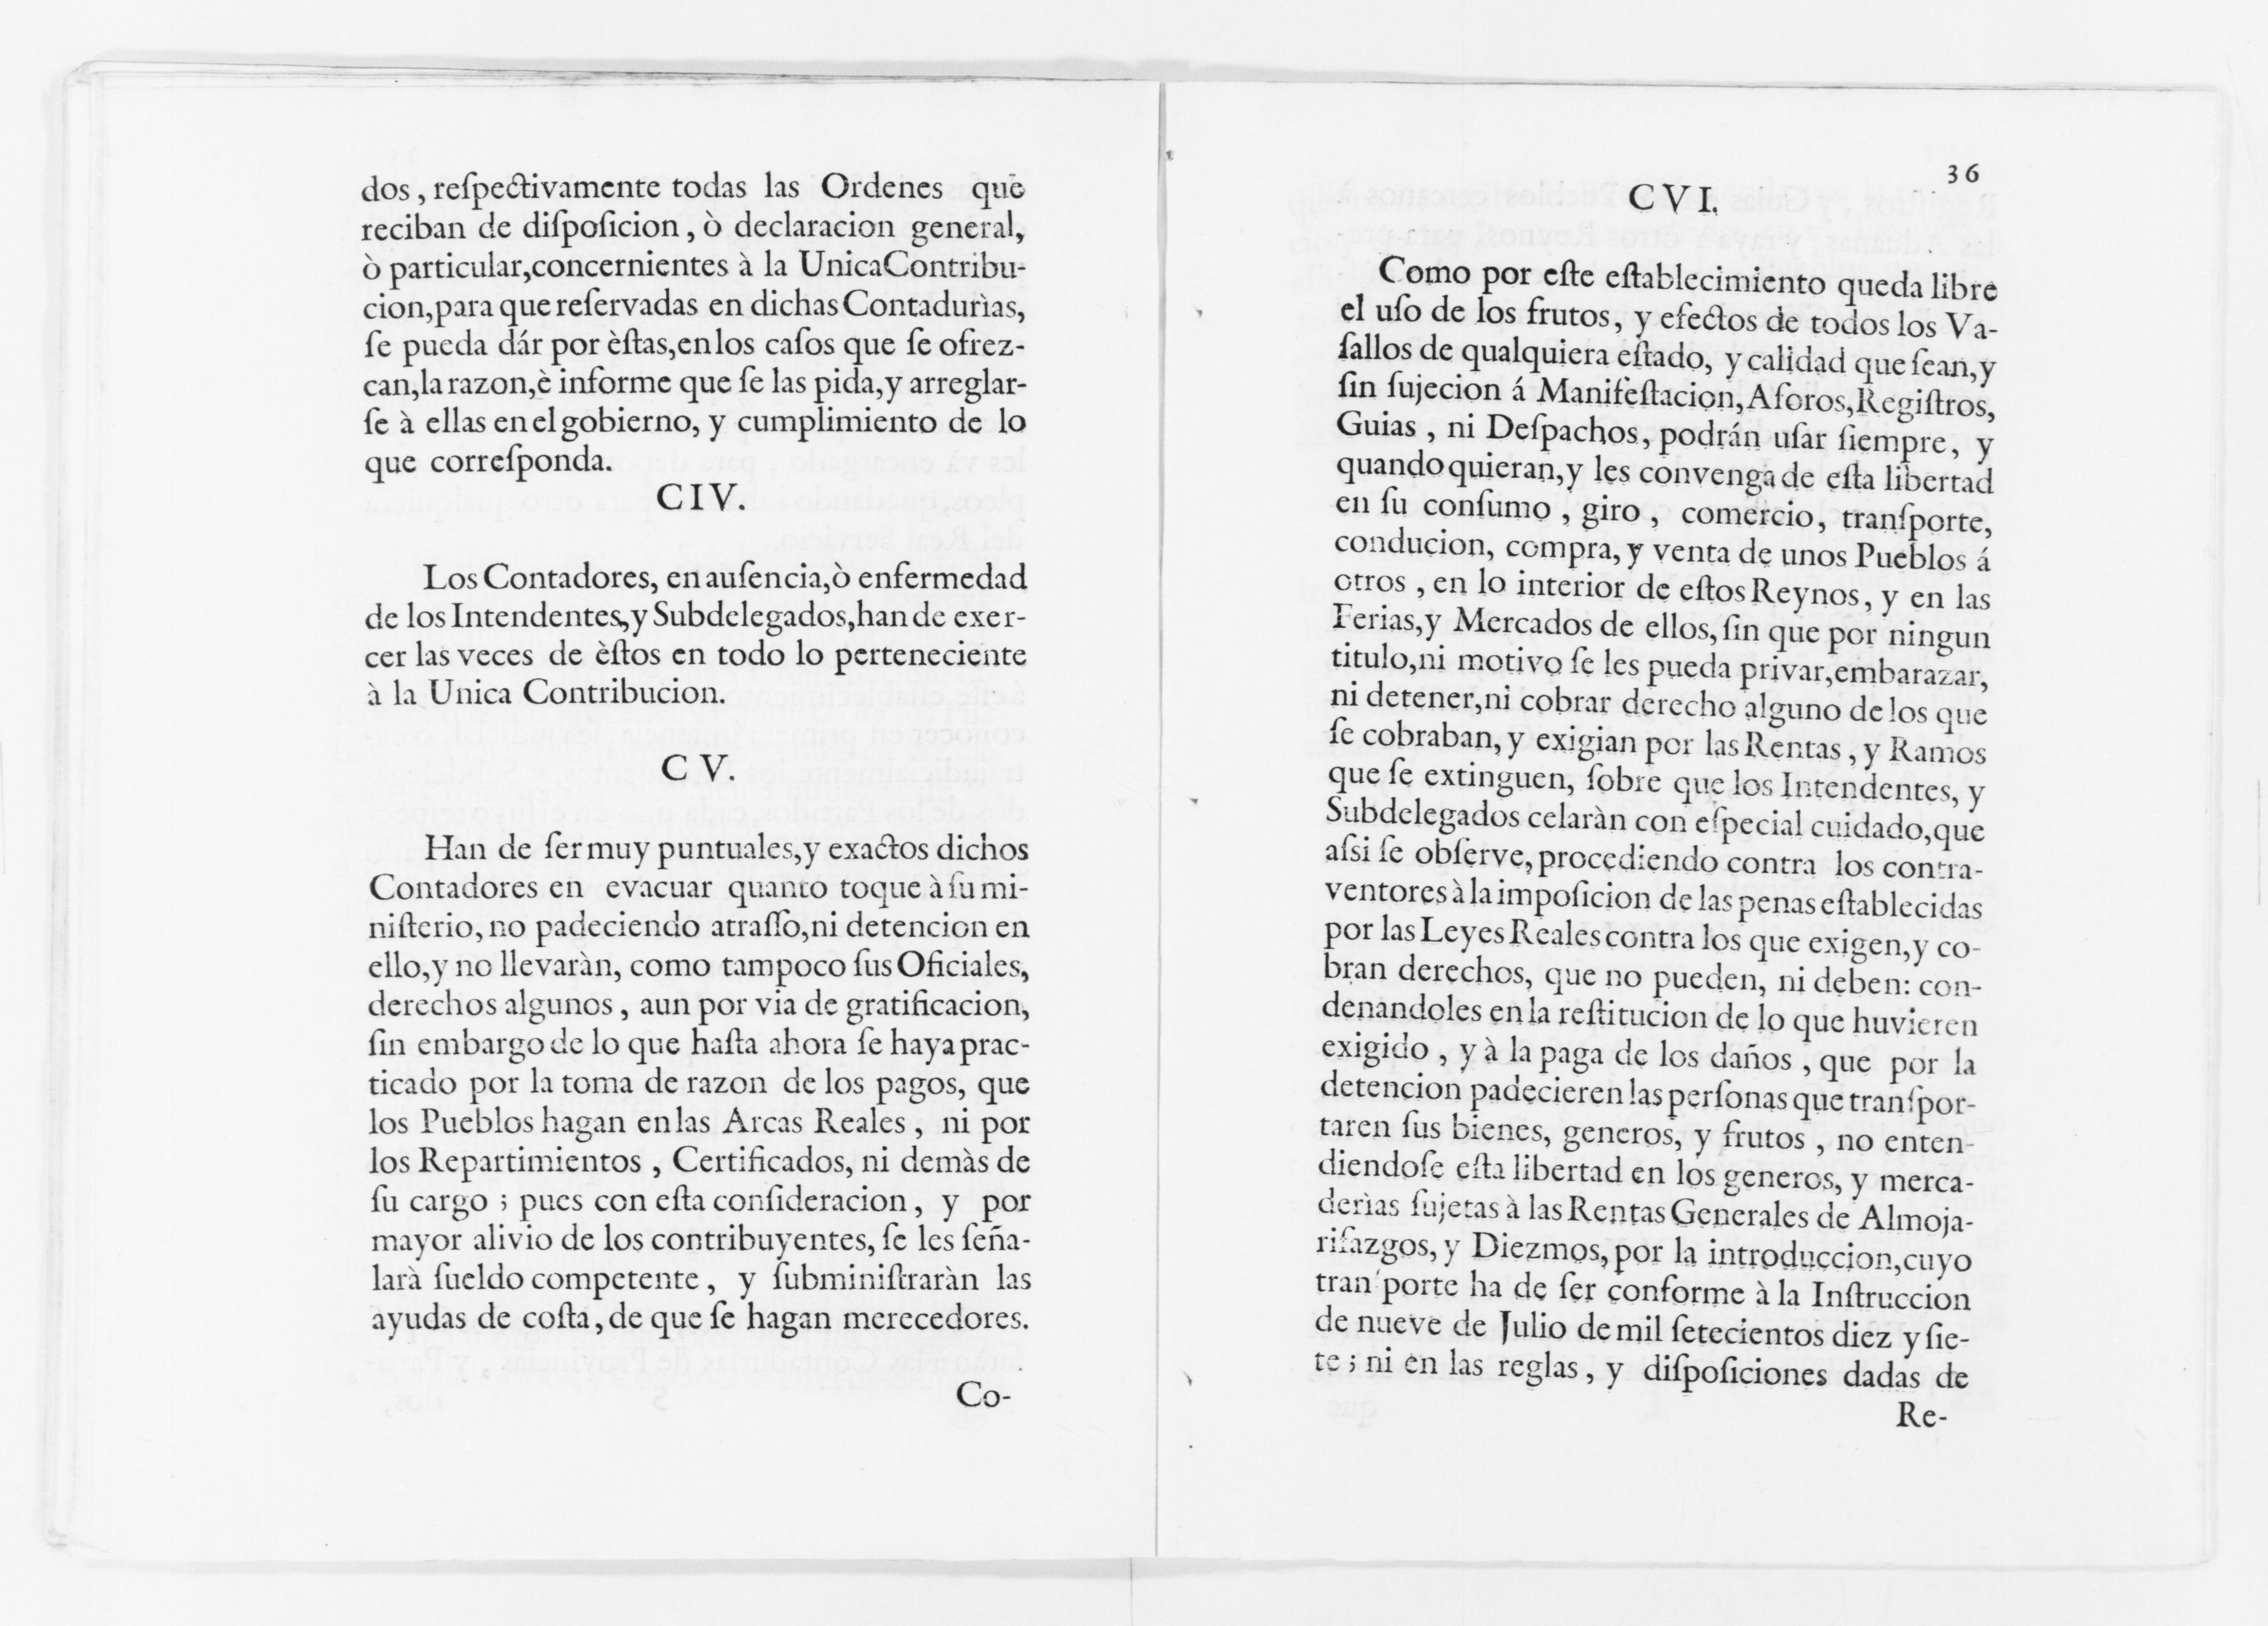 dos, reſpectivamente todas las Ordenes que
reciban de diſpoſicion, ò declaracion general,
ò particular, concernientes à la Unica Contribu-
cion, para que reſervadas en dichas Contadurìas,
ſe pueda dár por èſtas, en los caſos que ſe ofrez-
can, la razon, è informe que ſe las pida, y arreglar-
ſe à ellas en el gobierno, y cumplimiento de lo
que correſponda.
CIV.
Los Contadores, en auſencia, ò enfermedad
de los Intendentes, y Subdelegados, han de exer-
cer las veces de èſtos en todo lo perteneciente
à la Unica Contribucion.
CV.
Han de ſer muy puntuales, y exactos dichos
Contadores en evacuar quanto toque à ſu mi-
niſterio, no padeciendo atraſſo, ni detencion en
ello, y no llevaràn, como tampoco ſus Oficiales,
derechos algunos, aun por via de gratificacion,
ſin embargo de lo que haſta ahora ſe haya prac-
ticado por la toma de razon de los pagos, que
los Pueblos hagan en las Arcas Reales, ni por
los Repartimientos, Certificados, ni demàs de
ſu cargo; pues con eſta conſideracion, y por
mayor alivio de los contribuyentes, ſe les ſeña-
larà ſueldo competente, y ſubminiſtraràn las
ayudas de coſta, de que ſe hagan merecedores.
Co-
36
CVI.
Como por eſte eſtablecimiento queda libre
el uſo de los frutos, y efectos de todos los Va-
ſallos de qualquiera eſtado, y calidad que ſean, y
ſin ſujecion á Manifeſtacion, Aforos, Regiſtros,
Guias, ni Deſpachos, podrán uſar ſiempre, y
quando quieran, y les convenga de eſta libertad
en ſu conſumo, giro, comercio, tranſporte,
conducion, compra, y venta de unos Pueblos á
otros, en lo interior de eſtos Reynos, y en las
Ferias, y Mercados de ellos, ſin que por ningun
titulo, ni motivo ſe les pueda privar, embarazar,
ni detener, ni cobrar derecho alguno de los que
ſe cobraban, y exigian por las Rentas, y Ramos
que ſe extinguen, ſobre que los Intendentes, y
Subdelegados celaràn con eſpecial cuidado, que
aſsi ſe obſerve, procediendo contra los contra-
ventores à la impoſicion de las penas eſtablecidas
por las Leyes Reales contra los que exigen, y co-
bran derechos, que no pueden, ni deben: con-
denandoles en la reſtitucion de lo que huvieren
exigido, y à la paga de los daños, que por la
detencion padecieren las perſonas que tranſpor-
taren ſus bienes, generos, y frutos, no enten-
diendoſe eſta libertad en los generos, y merca-
derìas ſujetas à las Rentas Generales de Almoja-
rifazgos, y Diezmos, por la introduccion, cuyo
tranſporte ha de ſer conforme à la Inſtruccion
de nueve de Julio de mil ſetecientos diez y ſie-
te; ni en las reglas, y diſpoſiciones dadas de
Re-